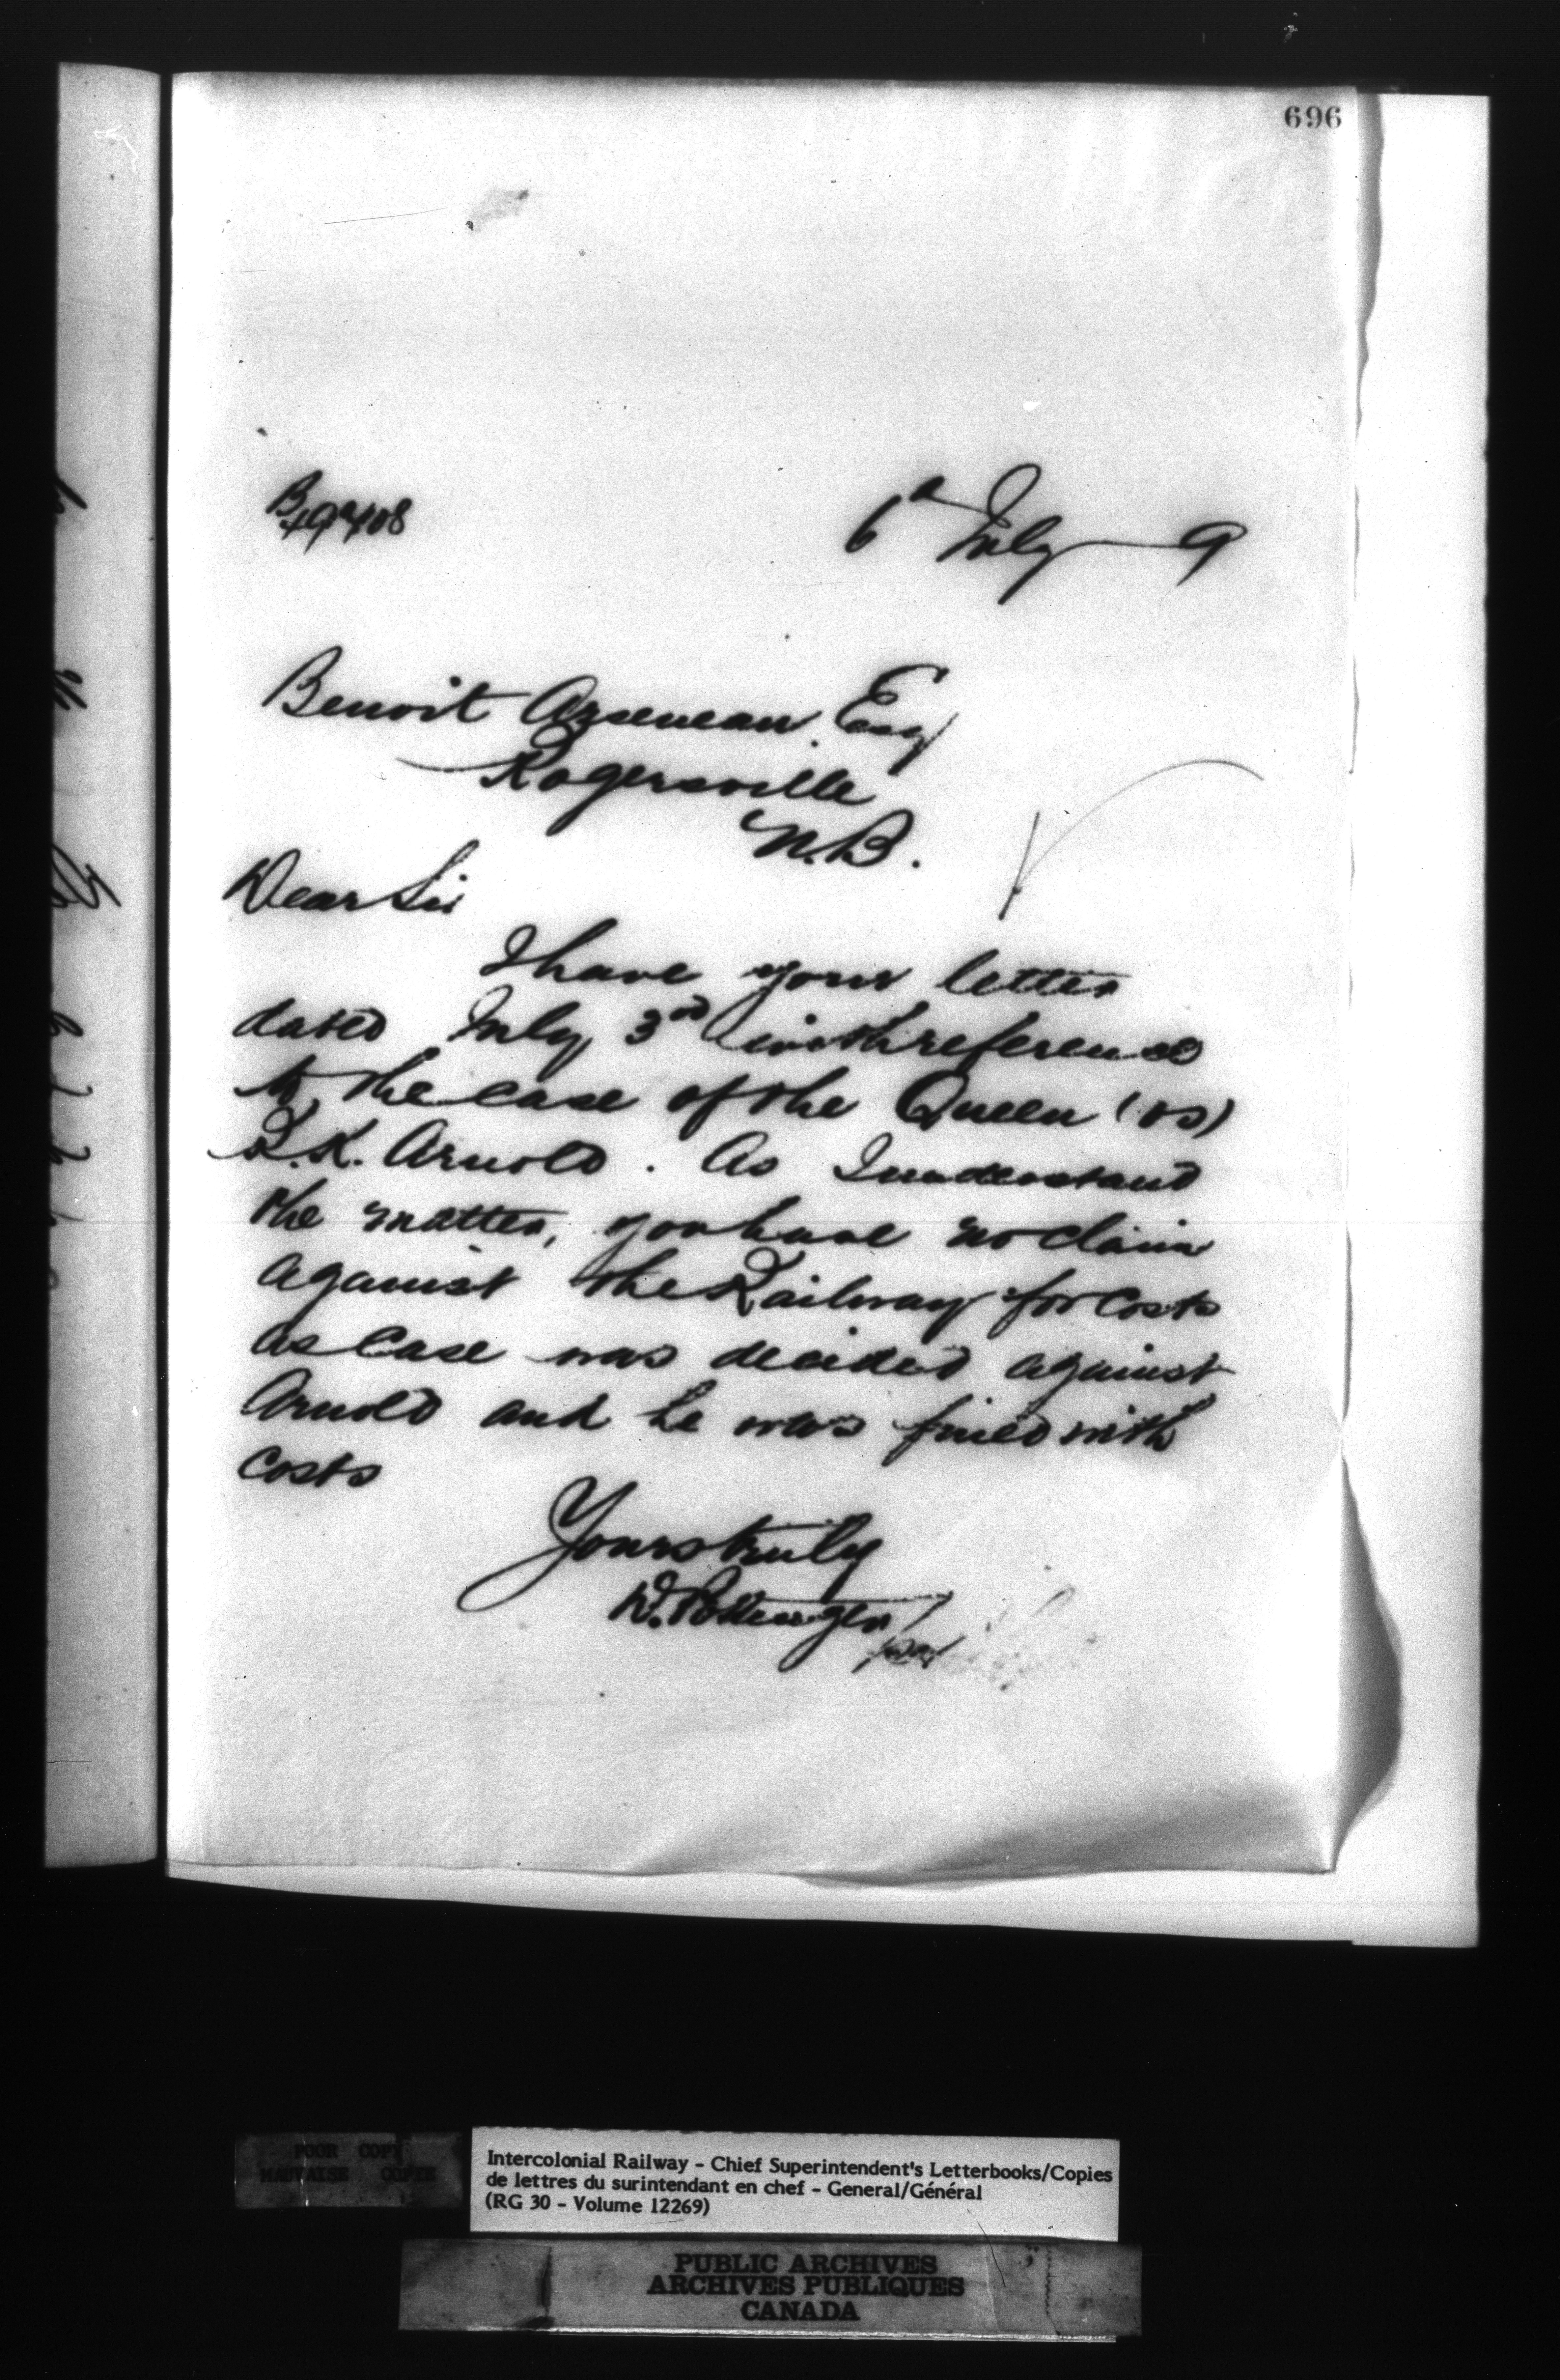 696
6th July 9
Benoit Arseneau. Esq
Rogersville
N.B.
Dear Sir
I have your letter
dated July 3rd with reference
to the case of the Queen (vs)
R.K. Arnold. As I understand
the matter, you have no claim
against the Railway for costs
as Case was decided against
Arnold and he was fined with
costs
Yours truly
D. Pottinger
POOR COPY
MAUVAISE COPIE
Intercolonial Railway - Chief Superintendent's Letterbooks/Copies
de lettres du surintendant en chef - General/Général
(RG 30 - Volume 12269)
PUBLIC ARCHIVES
ARCHIVES PUBLIQUES
CANADA